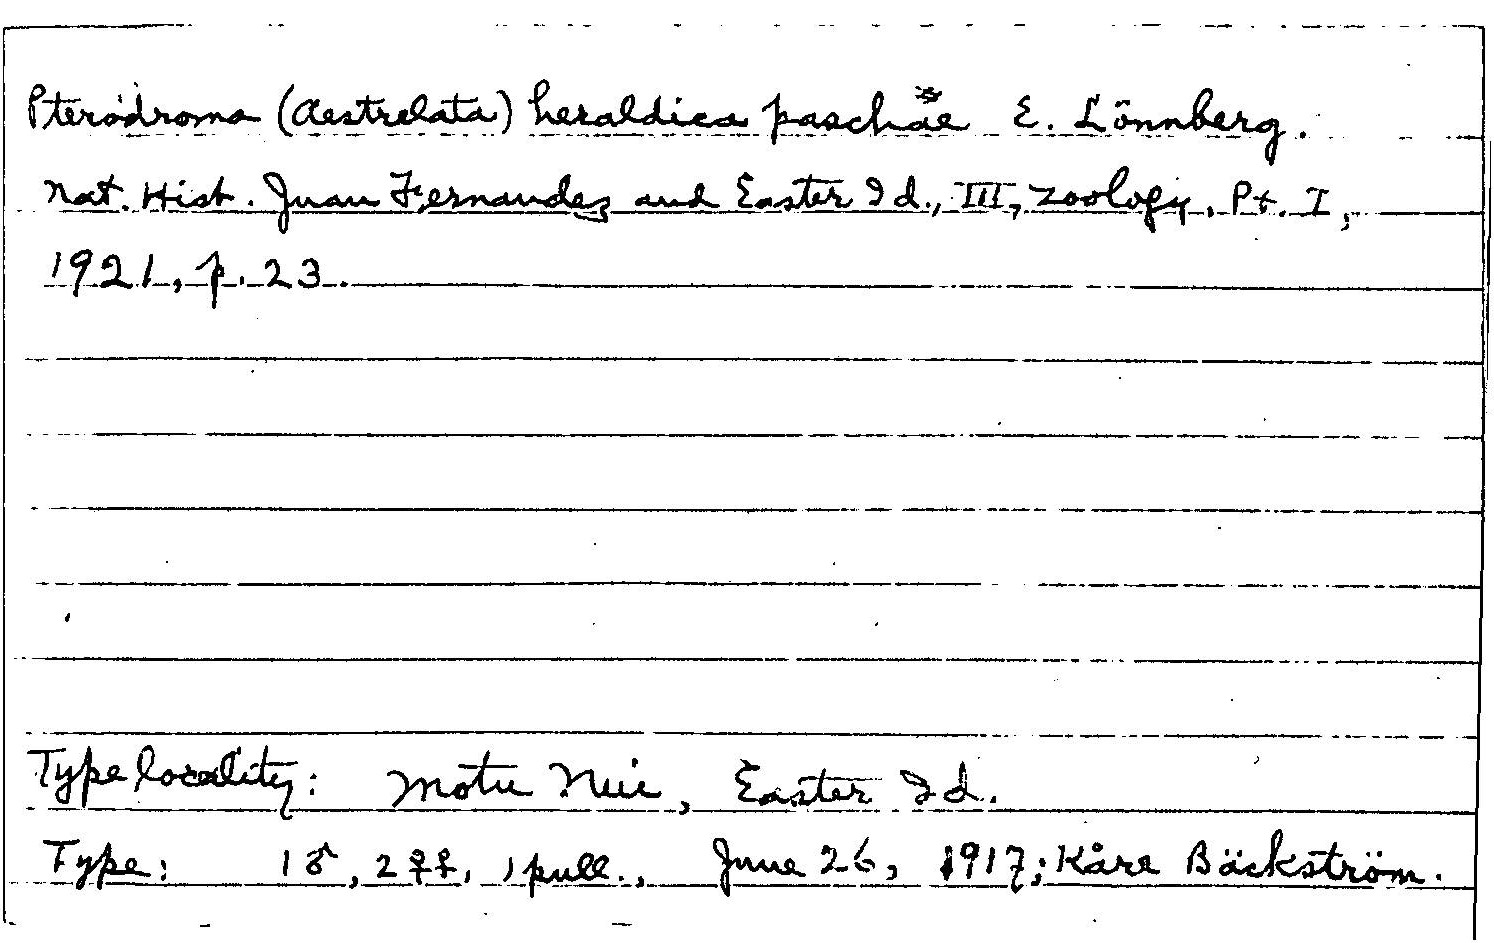 Pterodroma (Aestrelata) heraldica paschae* E. Lönnberg.
Nat. Hist. Juan Fernandez and Easter Id., III, Zoology, Pt. I,
1921, p. 23.
Type locality: Motu Nui, Easter Id.
Type: 1♂, 2♀♀, 1 pull., June 26, 1917; Kåre Bäckström.